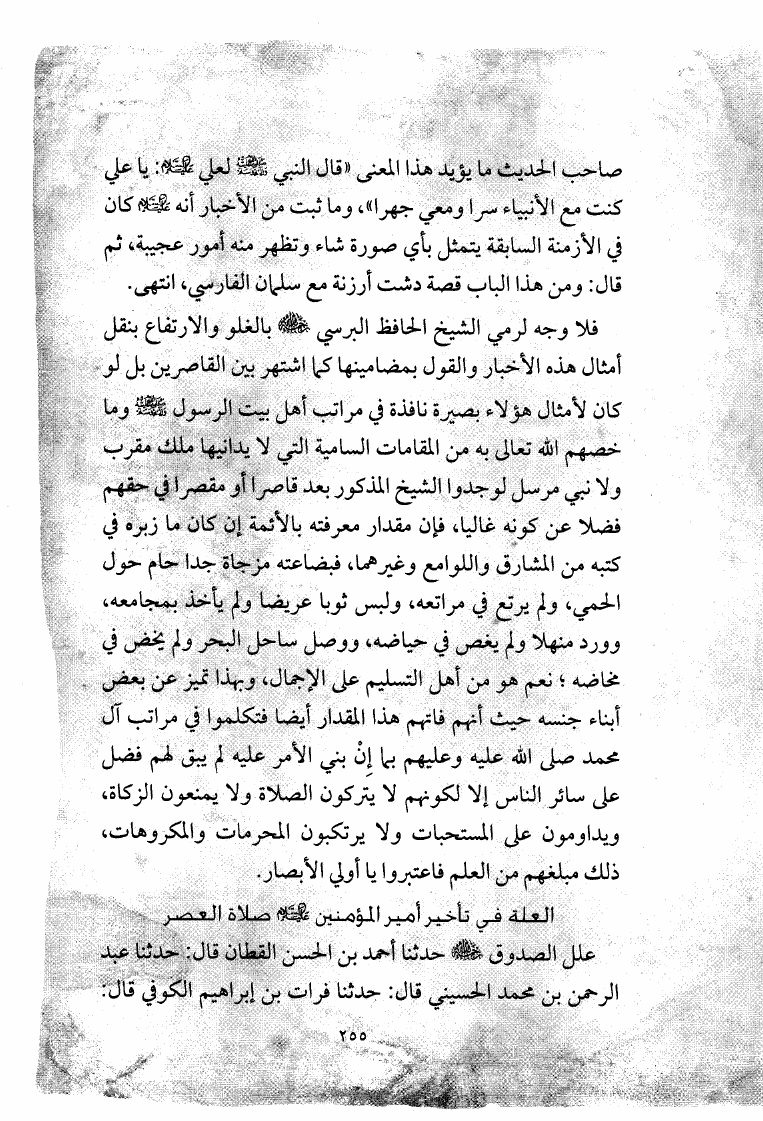 صاحب الحديث ما يؤيد هذا المعنى «قال النبي ﷺ لعلي عليه السلام: يا علي
كنت مع الأنبياء سرا ومعي جهرا»، وما ثبت من الأخبار أنه عليه السلام كان
في الأزمنة السابقة يتمثل بأي صورة شاء وتظهر منه أمور عجيبة، ثم
قال: ومن هذا الباب قصة دشت أرزنة مع سلمان الفارسي، انتهى.
فلا وجه لرمي الشيخ الحافظ البرسي بالغلو والارتفاع بنقل
أمثال هذه الأخبار والقول بمضامينها كما اشتهر بين القاصرين بل لو
كان لأمثال هؤلاء بصيرة نافذة في مراتب أهل بيت الرسول ﷺ وما
خصهم الله تعالى به من المقامات السامية التي لا يدانيها ملك مقرب
ولا نبي مرسل لوجدوا الشيخ المذكور بعد قاصرا أو مقصرا في حقهم
فضلا عن كونه غاليا، فإن مقدار معرفته بالأئمة إن كان ما زبره في
كتبه من المشارق واللوامع وغيرهما، فبضاعته مزجاة جدا حام حول
الحمي، ولم يرتع في مراتعه، ولبس ثوبا عريضا ولم يأخذ بمجامعه،
وورد منهلا ولم يغص في حياضه، ووصل ساحل البحر ولم يخض في
مخاضه ؛ نعم هو من أهل التسليم على الإجمال، وبهذا تميز عن بعض
أبناء جنسه حيث أنهم فاتهم هذا المقدار أيضا فتكلموا في مراتب آل
محمد صلى الله عليه وعليهم بما إِنْ بني الأمر عليه لم يبق لهم فضل
على سائر الناس إلا لكونهم لا يتركون الصلاة ولا يمنعون الزكاة،
ويداومون على المستحبات ولا يرتكبون المحرمات والمكروهات،
ذلك مبلغهم من العلم فاعتبروا يا أولي الأبصار.
العلة في تأخير أمير المؤمنين عليه السلام صلاة العصر
علل الصدوق حدثنا أحمد بن الحسن القطان قال: حدثنا عبد
الرحمن بن محمد الحسيني قال: حدثنا فرات بن إبراهيم الكوفي قال:
٢٥٥